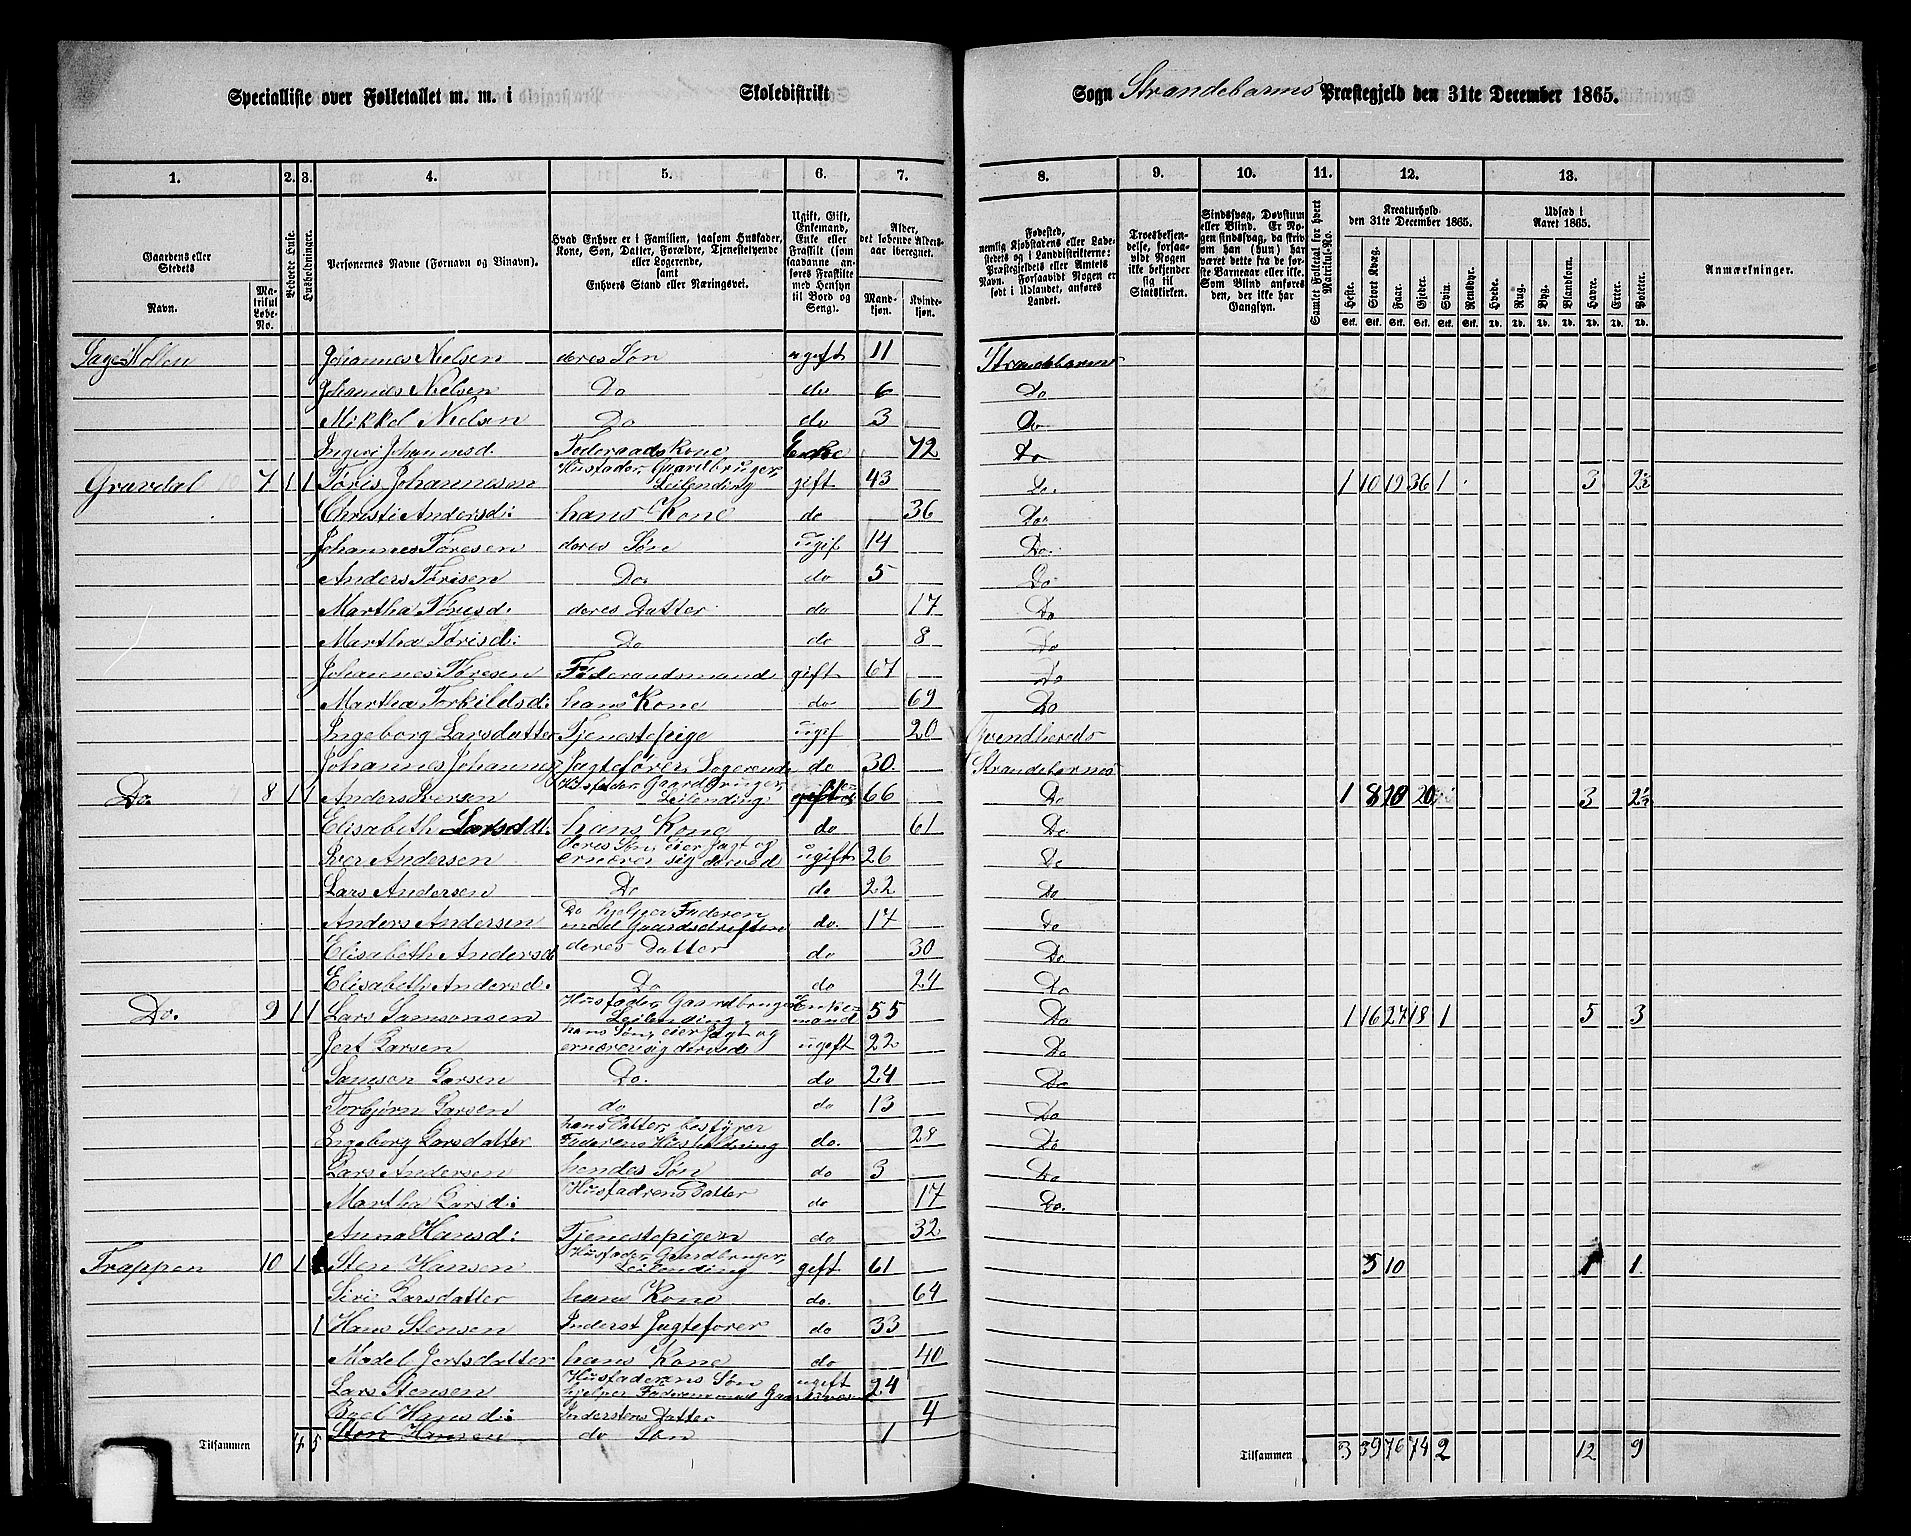 Specialliste over Folketallet m. m. i Skoledistrikt Sogn Strandebarms Præstegjeld den 31te December 1865.
1. 2. 3. 4. 5. 6. 7. 8. 9. 10. 11. 12. 13.
Gaardens eller Stedets
Navn.
Matrikul Løbe-No.
Beboede Huse.
Husholdninger.
Personernes Navne (Fornavn og Vinavn).
Hvad Enhver er i Familien, saasom Husfader, Kone, Søn, Datter, Forældre, Tjenestetyende eller Logerende,
samt
Enhvers Stand eller Næringsvei.
Ugift, Gift, Enkemand, Enke eller Fraskilt (som saadanne anføres Fraskilte med Hensyn til Bord og Seng).
Alder, det løbende Alders-aar iberegnet.
Mandkjøn. Kvindekjøn.
Fødested, nemlig Kjøbstadens eller Ladestedets og i Landdistrikterne: Præstegjeldets eller Amtets Navn. Forsaavidt Nogen er født i Udlandet, anføres Landet.
Troesbekjendelse, forsaavidt Nogen ikke bekjender sig til Statskirken.
Sindssvag, Døvstum eller Blind. Er Nogen sindssvag, da skrives om han (hun) har været dette fra de første Barneaar eller ikke. Som Blind anføres den, der ikke har Gangsyn.
Samlet Folketal for hvert Matrikul-No.
Kreaturhold den 31te December 1865.
Heste. Stort Kvæg. Faar. Gjeder. Svin. Rensdyr.
Udsæd i Aaret 1865.
Hvede. Rug. Byg. Blandkorn. Havre. Erter. Poteter.
Anmærkninger.
Johannes Nielsen deres Søn ugift 11 Strandebarm
Johannes Nielsen Do do 6 Do
Mikkel Nielsen Do do 3 Do
Føderaads Kone Enke 72 Do
Gravdal 7 1 1 Tøris Johannesen Husfader, Gaardbruger, Leilending gift 43 Do. 1 10 19 36 1 3 2½
Christi Andersd: hans Kone do 36 Do
Johannes Tøresen deres Søn ugif 14 Do.
Anders Tørisen Do. do 5 Do
Martha Tørisd: deres Datter do 17 Do
Martha Tørisd: Do do 8 Do
Johannes Tøresen Føderaadsmand gift 67 Do
Martha Torkildsd: hans Kone do 69 Do
Ingeborg Larsdatter Tjenestepige ugif 20 Qvindherreds
Jagtefører, Logerende do 30. Strandebarms
Do. 8 1 1 Anders Iversen Husfader, Gaardbruger, Leilending 66 Do 1 8 20 20 3 2½
Elisabeth Larsdt: hans Kone do 61 Do
Iver Andersen deres Søn, eier Jagt og ernærer sig derved ugift 26 Do
Lars Andersen Do do 22 Do
Anders Andersen Do hjelper Faderen med Gaardsdriften do. 17 Do
Elisabeth Andersd deres Datter do 30 Do
Elisabeth Andersd: Do do 24 Do
Do. 9 1 1 Lars Samsonsen Husfader, Gaardbruger Leilending Enkemand 55 Do 1 16 27 18 1 5 3
Jert Larsen hans Søn, eier Jagt og ernærer sig derved ugift 22 Do
Samson Larsen Do. do 24 Do
Torbjørn Larsen do do 13 Do
Ingeborg Larsdatter hans Datter, bestyrer Faderens Husholdning do. 28 Do
Lars Andersen hendes Søn do 3 Do
Martha Larsd: Husfaderens Datter do 17 Do.
Anna Hansd: Tjenestepigen do 32
Trappen 10 1 Sten Hansen Husfader, Gaardbruger, Leilending gift 61 5 10 1 1.
Siri Larsdatter hans Kone do. 64
1 Hans Stensen Inderst Jagtefører do 33
Madel Jertsdatter hans Kone do 40
Lars Stensen Husfaderens Søn hjelper Faderen med Gaardsvæsen ugift 24
Hansd: Inderstens Datter 4
Sten Hansen do Søn 1
Tilsammen 4 5 Tilsammen 3 39 76 74 2 12 9